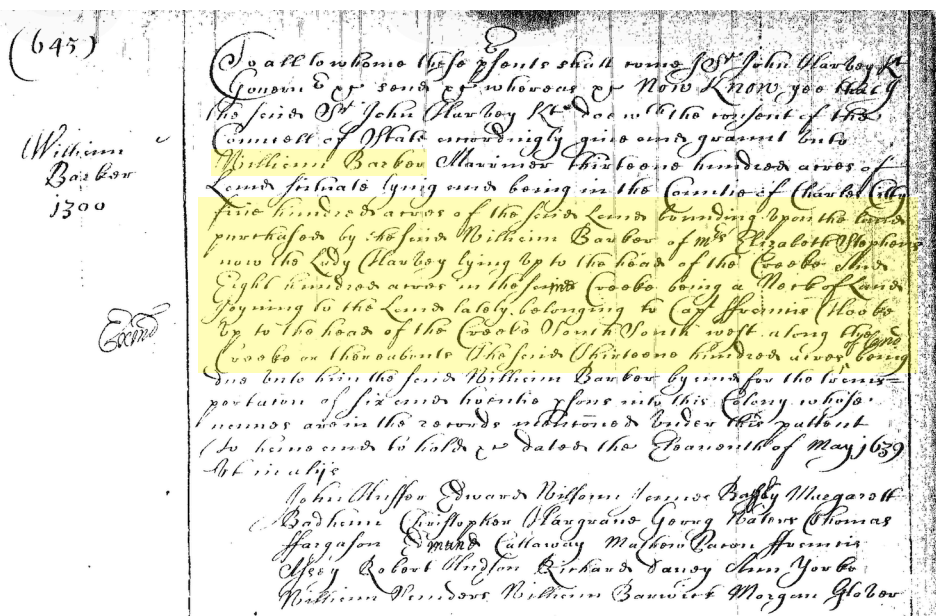 (645)
To all to whome these psents shall come I Sr John Harvey Kt
Govern &c send &c whereas &c Now Know yee that I
the said Sr John Harvey Kt doe wth the consent of the
Councell of State accordingly give and graunt unto
William Barker Marriner thirteene hundred acres of
Land situate lying and being in the Countie of Charles Citty
five hundred acres of the said Land bounding upon the land
purchased by the said William Barker of Mrs Elizabeth Stephens
now the Lady Harvey lying up to the head of the Creeke And
Eight hundred acres in the same Creeke being a Neck of Land
Joyning to the Land lately belonging to Capt ffrancis Hooke
up to the head of the Creeke South South west along the said
Creeke or thereabouts The said Thirteene hundred acres being
due unto him the said William Barker by and for the trans=
portation of six and twentie psons into this Colony whose
names are in the records mentioned under this pattent
To have and to hold &c dated the Eleaventh of May 1639
Ut in alijs
John Edward Willson James Margarett
Badham Christopher Hargrave Georg Waters Thomas
ffargason Edmund Callaway Mathew Bacon ffrancis
Robert Hudson Richard Davey Ann Yorke
William Sanders William Barwick Morgan Glover
William
Barker
1300